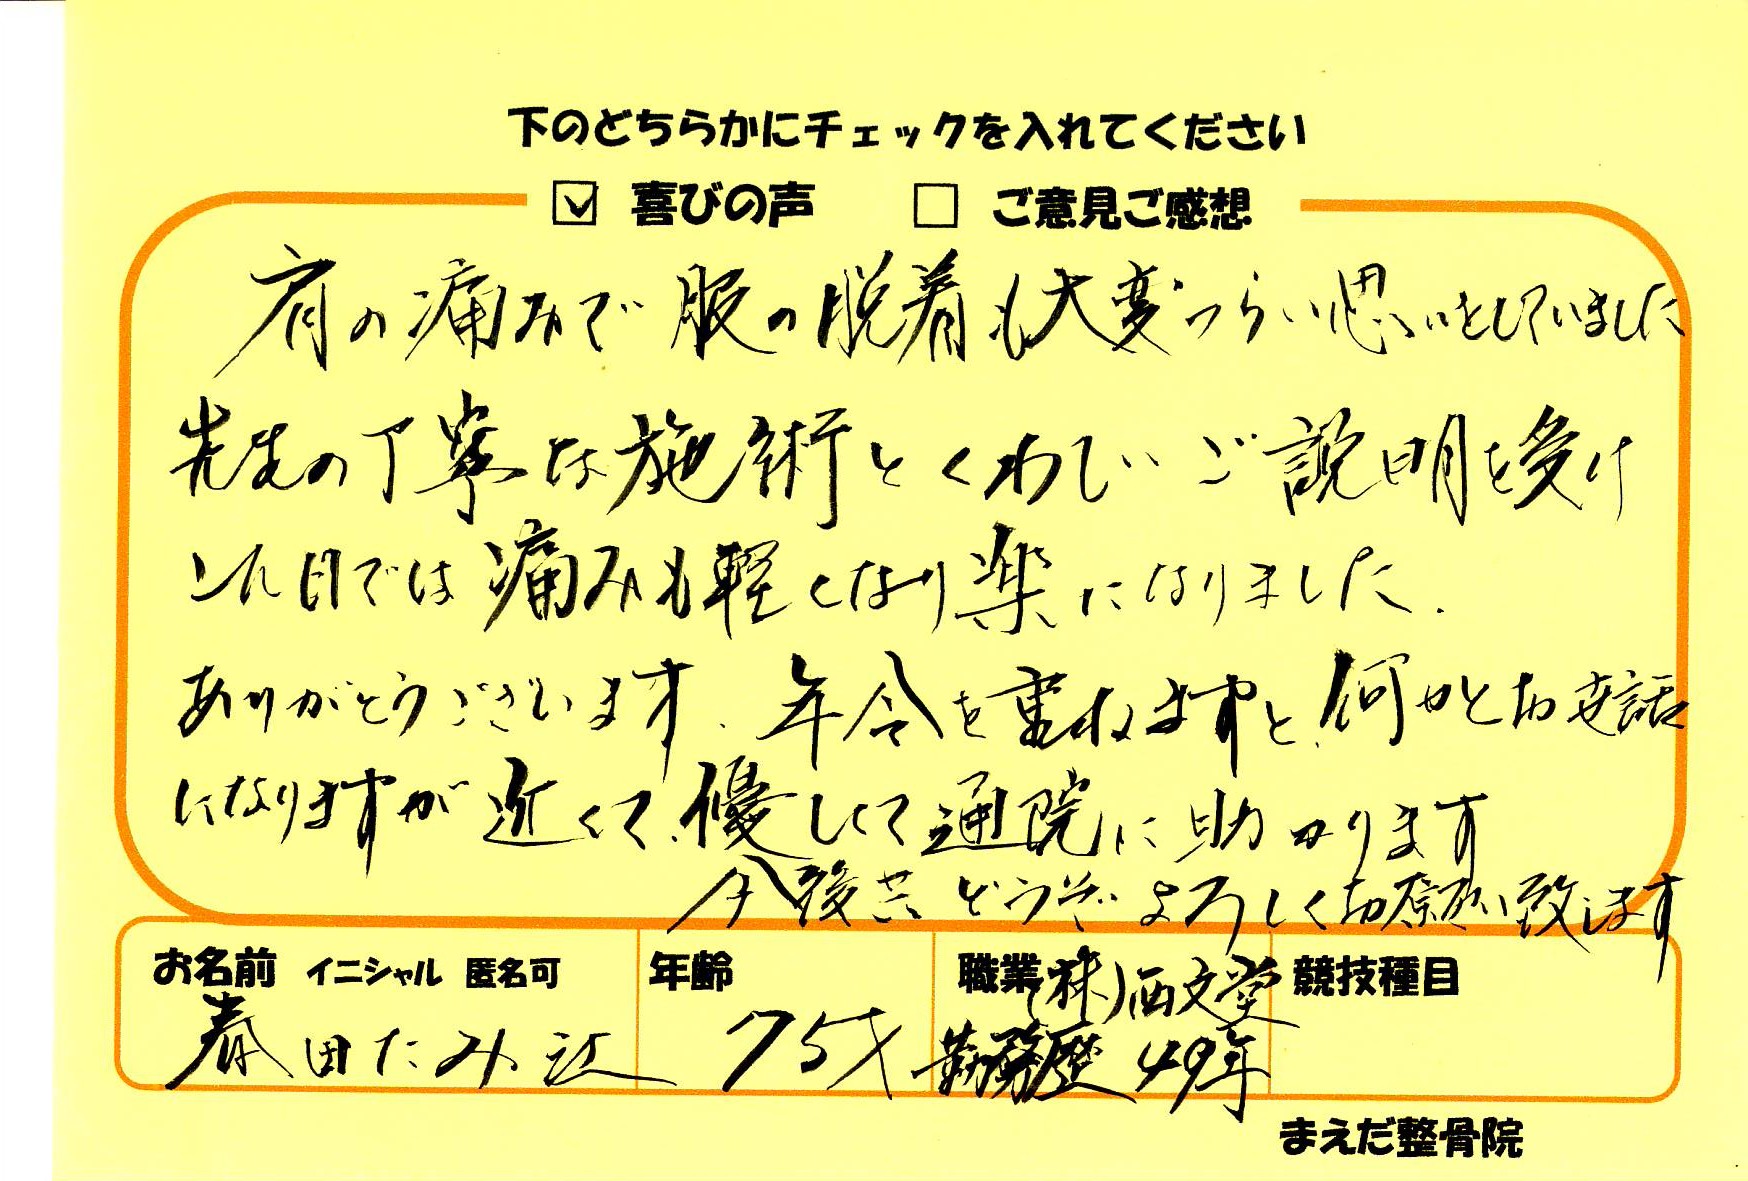 下のどちらかにチェックを入れてください
☑ 喜びの声 □ ご意見ご感想
肩の痛みで服の脱着も大変つらい思いをしていました
先生の丁寧な施術とくわしいご説明を受け
これ日では痛みも軽くなり楽になりました.
ありがとうございます、年令を重ねますと、何かとお世話
になりますが近くて、優しくて通院に助かります
今後共どうぞよろしくお願い致します
お名前 イニシャル 匿名可 年齢 職業 (株)西文堂 競技種目
春田たみ江 75才 勤務歴 49年
まえだ整骨院